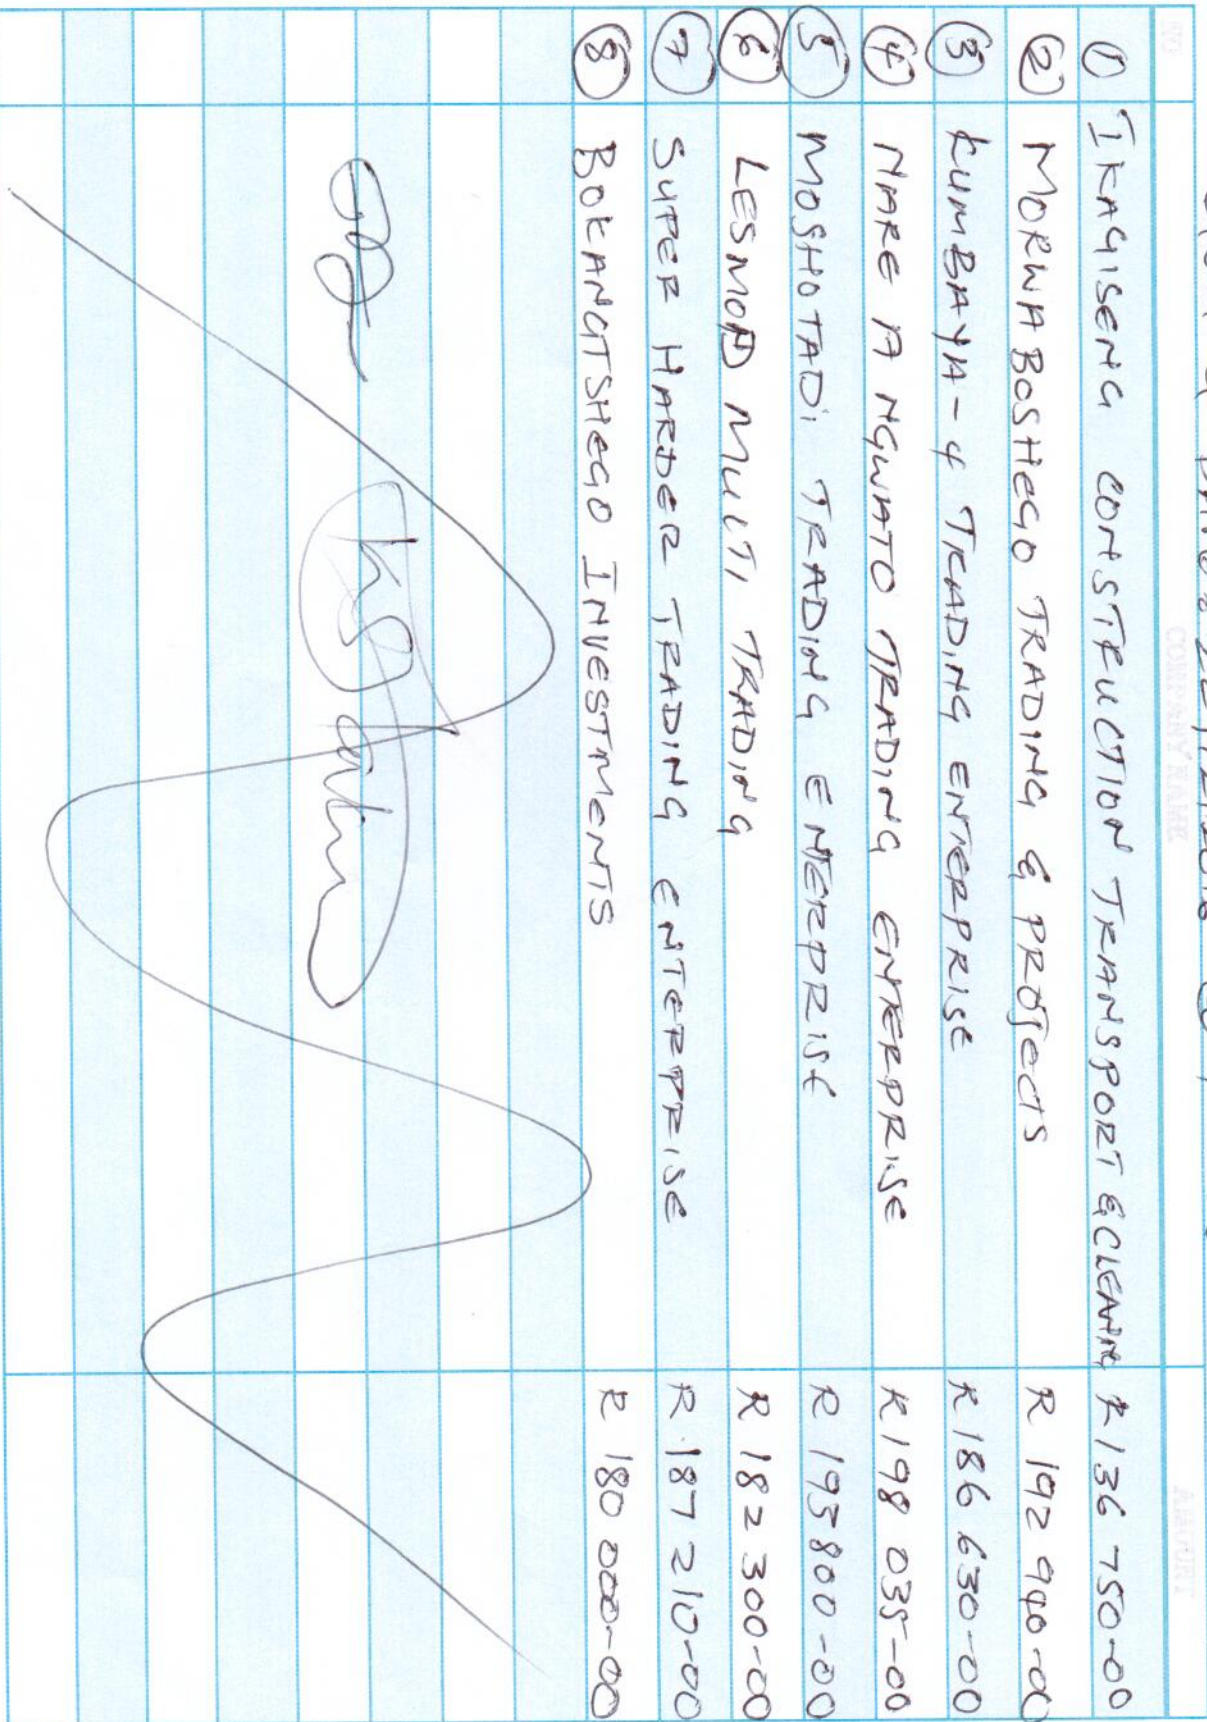 NO COMPANY NAME AMOUNT
① IKAGISENG CONSTRUCTION TRANSPORT & CLEANING R 136 750-00
② MORWABOSHEGO TRADING & PROJECTS R 192 940-00
③ KUMBAYA-4 TRADING ENTERPRISE R 186 630-00
④ NARE A NGWATO TRADING ENTERPRISE R 198 035-00
⑤ MOSHOTADI TRADING ENTERPRISE R 193 800-00
⑥ LESMOD MULTI TRADING R 182 300-00
⑦ SUPER HARDER TRADING ENTERPRISE R 187 210-00
⑧ BOKANGTSHEGO INVESTMENTS R 180 000-00